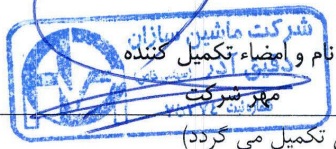 شرکت ماشین سازان
نام و امضاء تکمیل کننده
دقیق آذر
مهر شرکت
تکمیل می گردد)